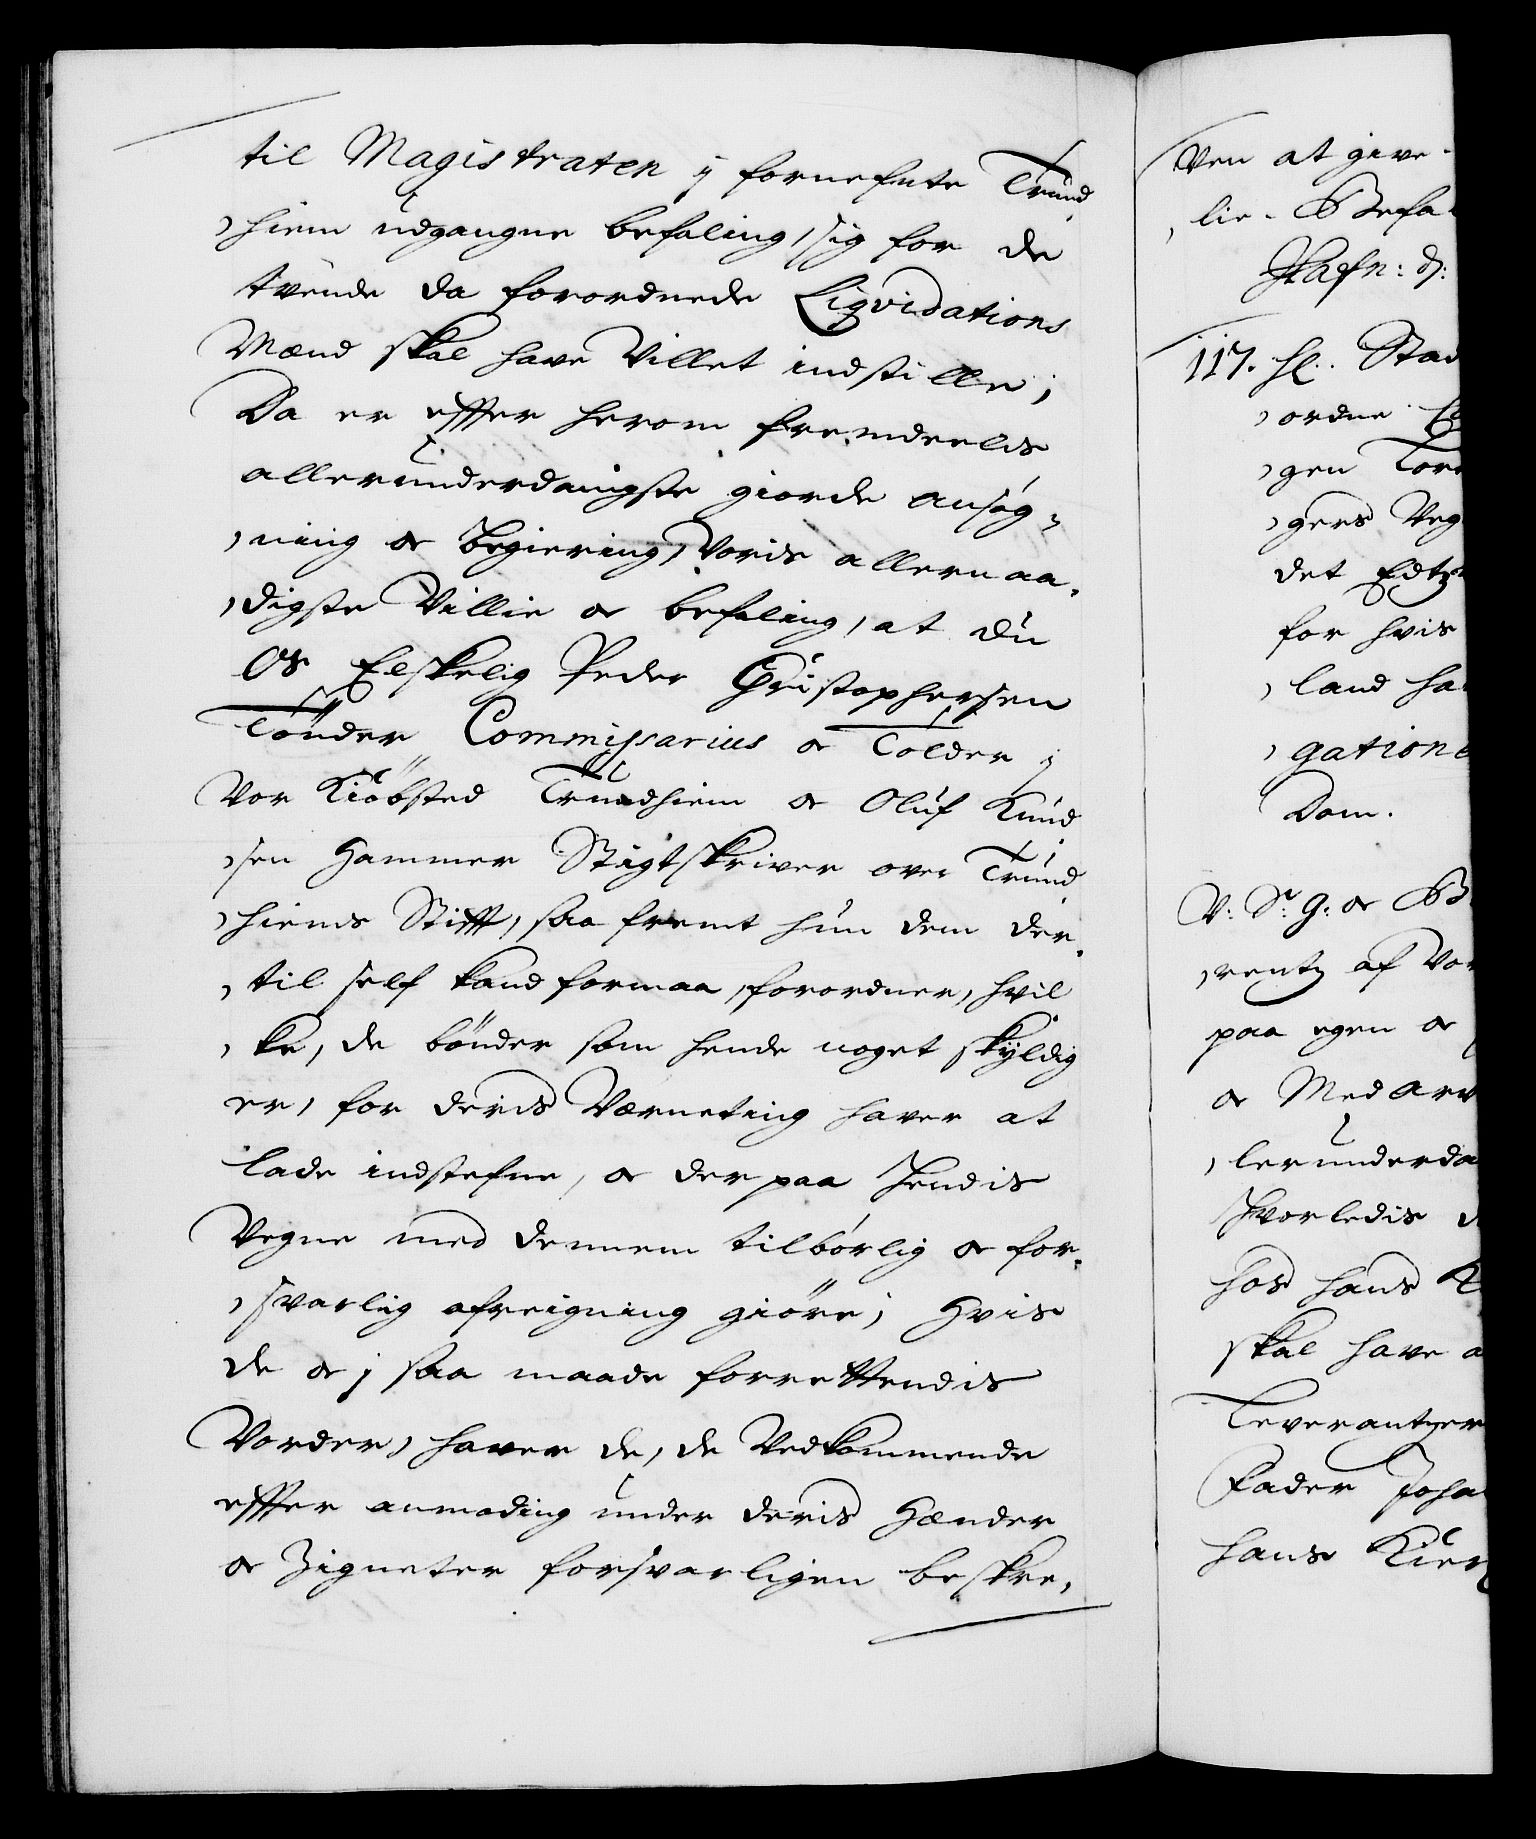 til Magistraten ÿ fornefnte Trund
hiem udgangne befaling, sig for de
tvende da forordnede Liqvidations
Mænd skal have villet indstille;
Da er effter herom fremdeelis
allerunderdanigste giorde ansøg-
ning oc begiering, Voris allernaa-
digste Villie oc befaling, at du
Os Elskelig Peder Christophersen
Tönder Commissarius oc Tolder ÿ
Vor Kiöbsted Trundhiem oc Oluf Knud
sen Hammer Stigtskriver over Trund
hiems Stifft, saa fremt hun dem der-
til self kand formaa, forordner, hvil
ke, de bönder som hende noget skÿldig
er, for deris Værneting haver at
lade indstefne, oc der paa Hendis
Vegne med dennem tilbørlig oc for-
svarlig afreigning giöre; Hvis
de oc j saa maade forrettendis
Vorder, haver de, de Vedkommende
effter anmoding under deris Hænder
oc Zigneter forsvarligen beskre,
ven at give
lie. Befa
Hafn: d:
117. Hl: Stad
ordne
gen Tore
gers Veg
det
for hvis
land ha
gatione
Dom.
V: Sr. G: oc B
rentz af Vor
paa egen oc
oc Med arv
lerunderda
Hvorledis
hos hans
skal have a
Leverantzer
Fader Joha
hans Kier